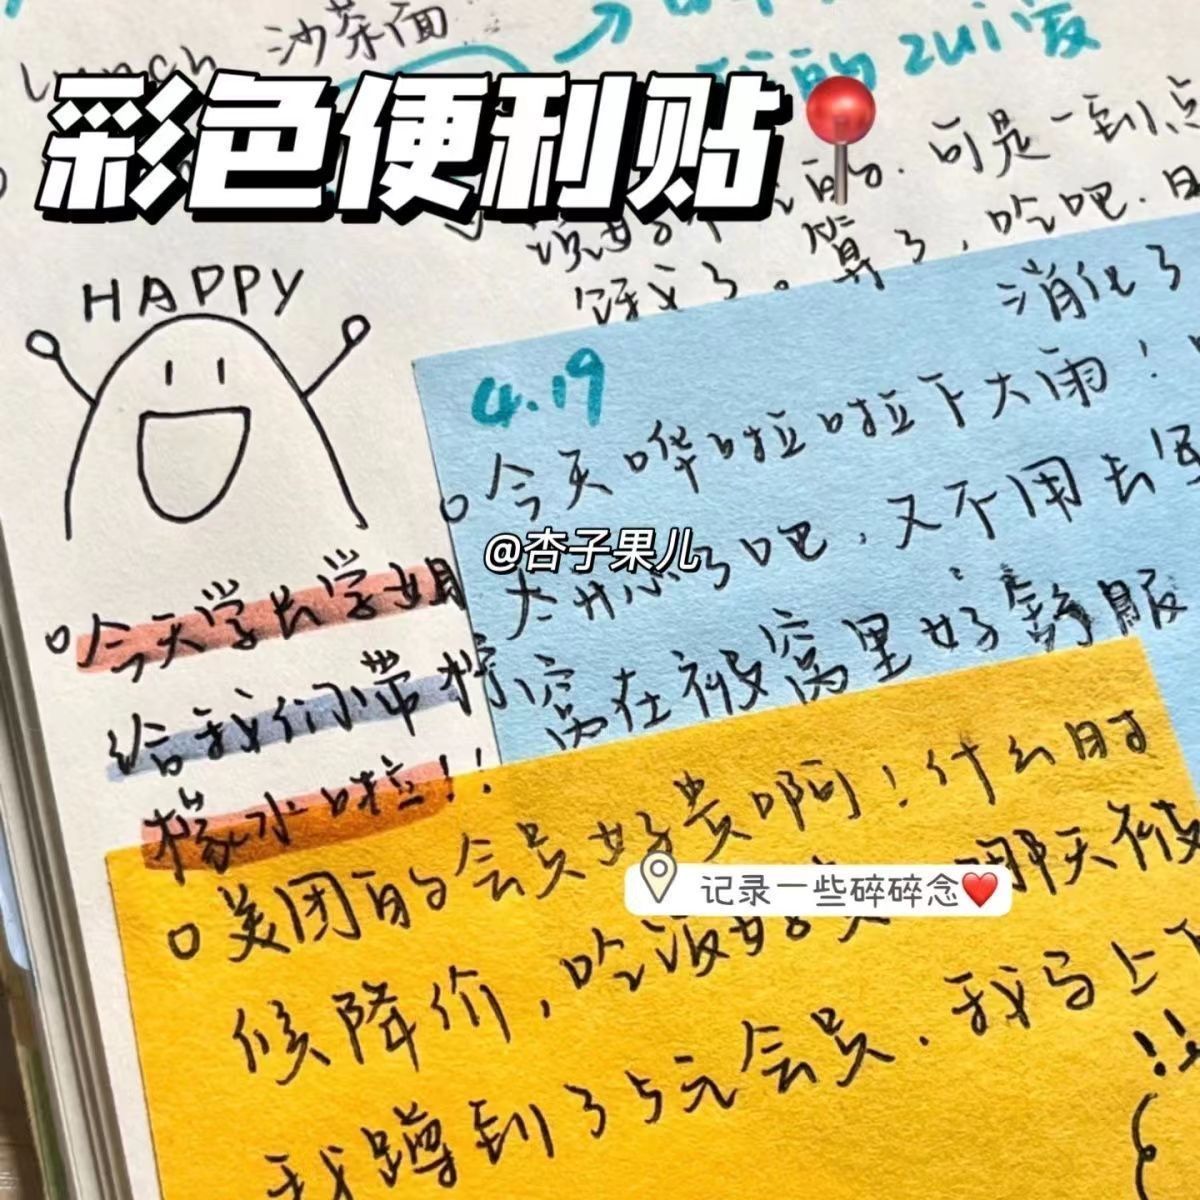 Lunch 沙茶面
我的zui爱
彩色便利贴
的.可是一到点
饿了。算了,哈吧.
消化了
HAPPY
4.19
今天哗啦啦下大雨!
太开心了吧,又不用去军
窝在被窝里好舒服
@杏子果儿
今天学长学姐
给我们带
橡水啦!!
美团的会员好贵啊!什么时
候降价,吃饭好贵 那天被
记录一些碎碎念
我蹲到了5元会员.我马上下
!!